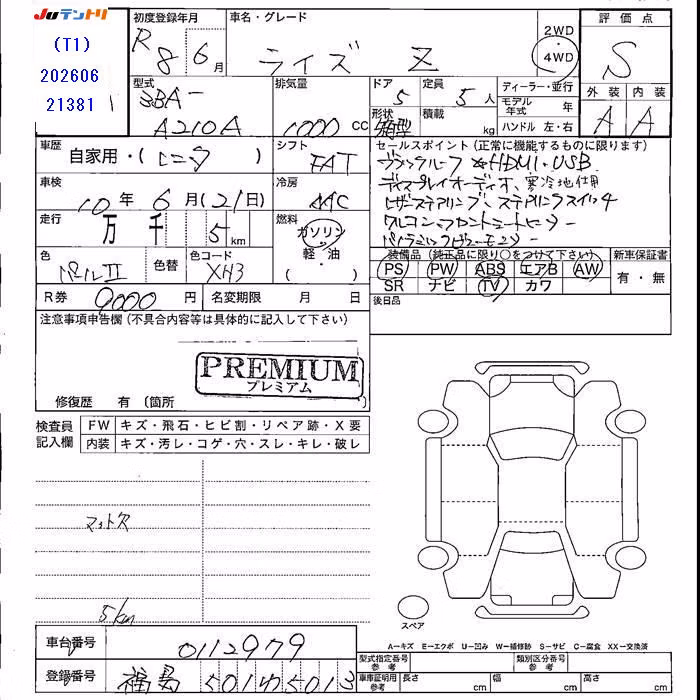 Juテントリ
(T1)
202606
21381
初度登録年月
R8 6月
車名・グレード
ライズ Z
2WD
4WD
評価点
S
外装 内装
A A
型式
3BA-
A210A
排気量
1000 cc
ドア
5
形状
箱型
定員
5人
積載
kg
ディーラー・並行
モデル年式 年
ハンドル 左・右
車歴
自家用・(レンタ)
シフト
FAT
セールスポイント (正常に機能するものに限ります)
HDMI・USB
ディスプレイオーディオ、寒冷地仕様
パノラミックビューモニター
車検
10年6月(21日)
冷房
AAC
走行
万 千 5km
燃料
ガソリン
軽・油
( )
色
パールII
色替
色コード
XH3
装備品(純正品に限り○をつけて下さい)
PS PW ABS エアB AW
SR ナビ TV カワ
新車保証書
有・無
後日品
R券
9000円
名変期限 月 日
注意事項申告欄(不具合内容等は具体的に記入して下さい)
PREMIUM
プレミアム
修復歴 有(箇所
検査員
記入欄
FW キズ・飛石・ヒビ割・リペア跡・X要
内装 キズ・汚レ・コゲ・穴・スレ・キレ・破レ
マット欠
5km
スペア
A…キズ E…エクボ U…凹み W…補修跡 S…サビ C…腐食 XX…交換済
車台番号
0112979
登録番号
福島 501
型式指定番号
参考
類別区分番号
参考
車庫証明用
参考
長さ cm
幅 cm
高さ cm